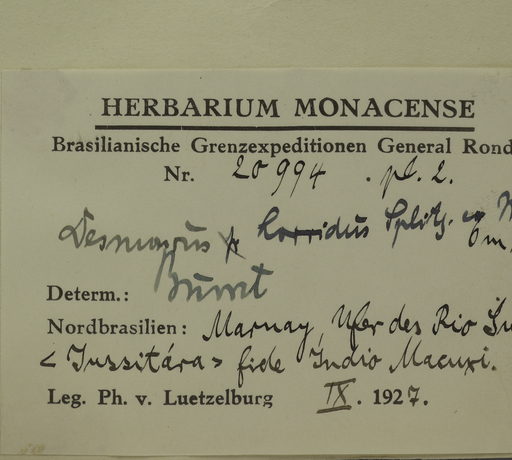 HERBARIUM MONACENSE
Brasilianische Grenzexpeditionen General Rond
Nr. 20994 . pl. 2.
Desmoncus horridus Splitg. ex M
Determ.: Burret
Nordbrasilien: Marnay, Ufer des Rio Su
< Jussitára > fide Indio Macuxi.
Leg. Ph. v. Luetzelburg IX. 1927.